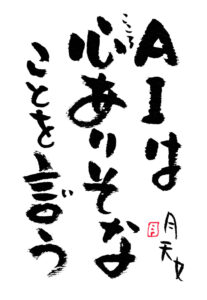 AIは
心ありそな
こころ
ことを言う
月天
月